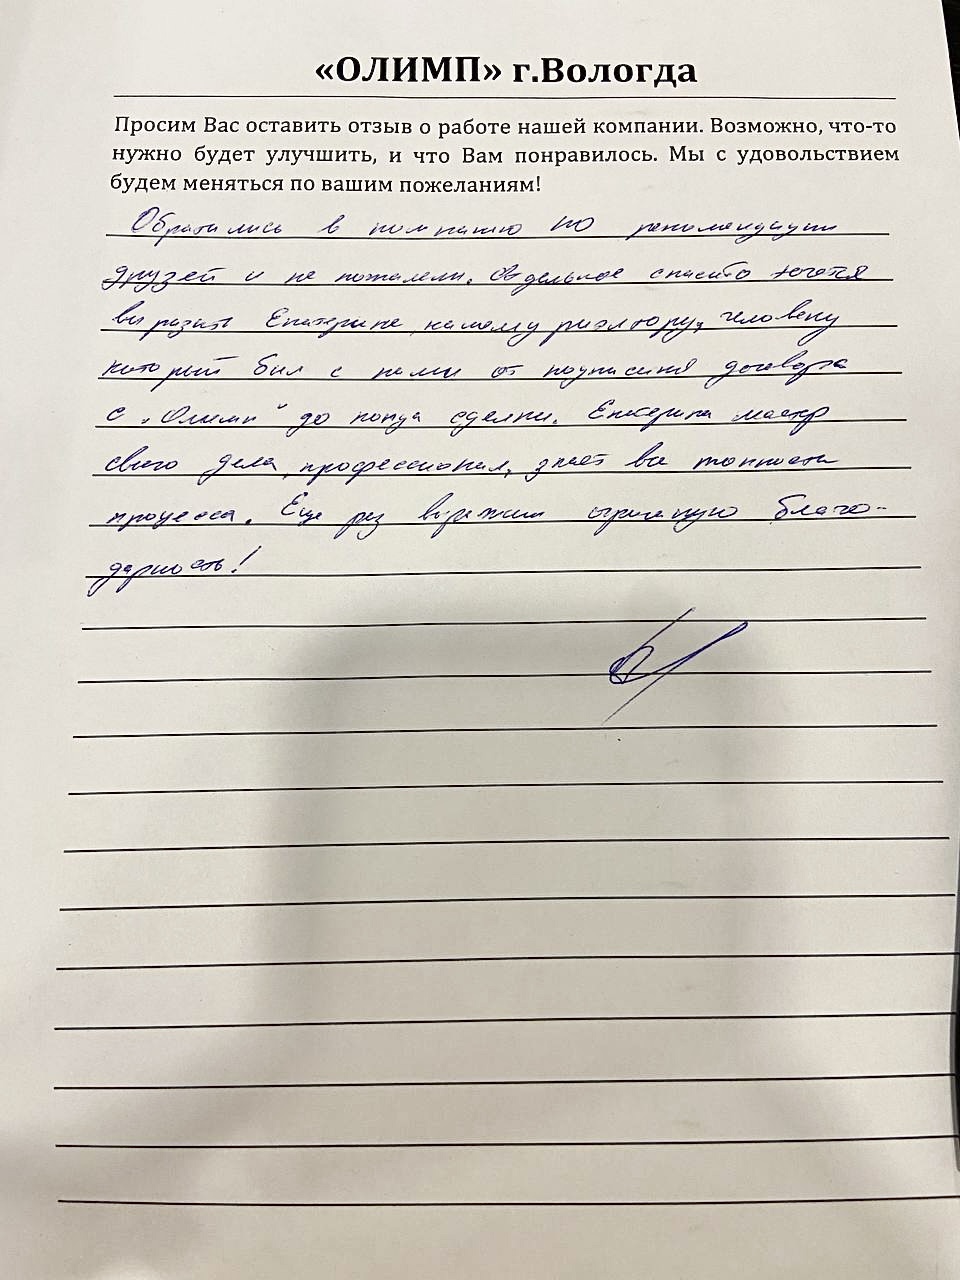 «ОЛИМП» г.Вологда
Просим Вас оставить отзыв о работе нашей компании. Возможно, что-то
нужно будет улучшить, и что Вам понравилось. Мы с удовольствием
будем меняться по вашим пожеланиям!
Обратились в компанию по рекомендации
друзей и не пожалели. Отдельное спасибо хочется
выразить Екатерине, нашему риэлтору, человеку
который был с нами от подписания договора
с „Олимп“ до конца сделки. Екатерина мастер
своего дела, профессионал, знает все тонкости
процесса. Еще раз выражаем огромную благо-
дарность!